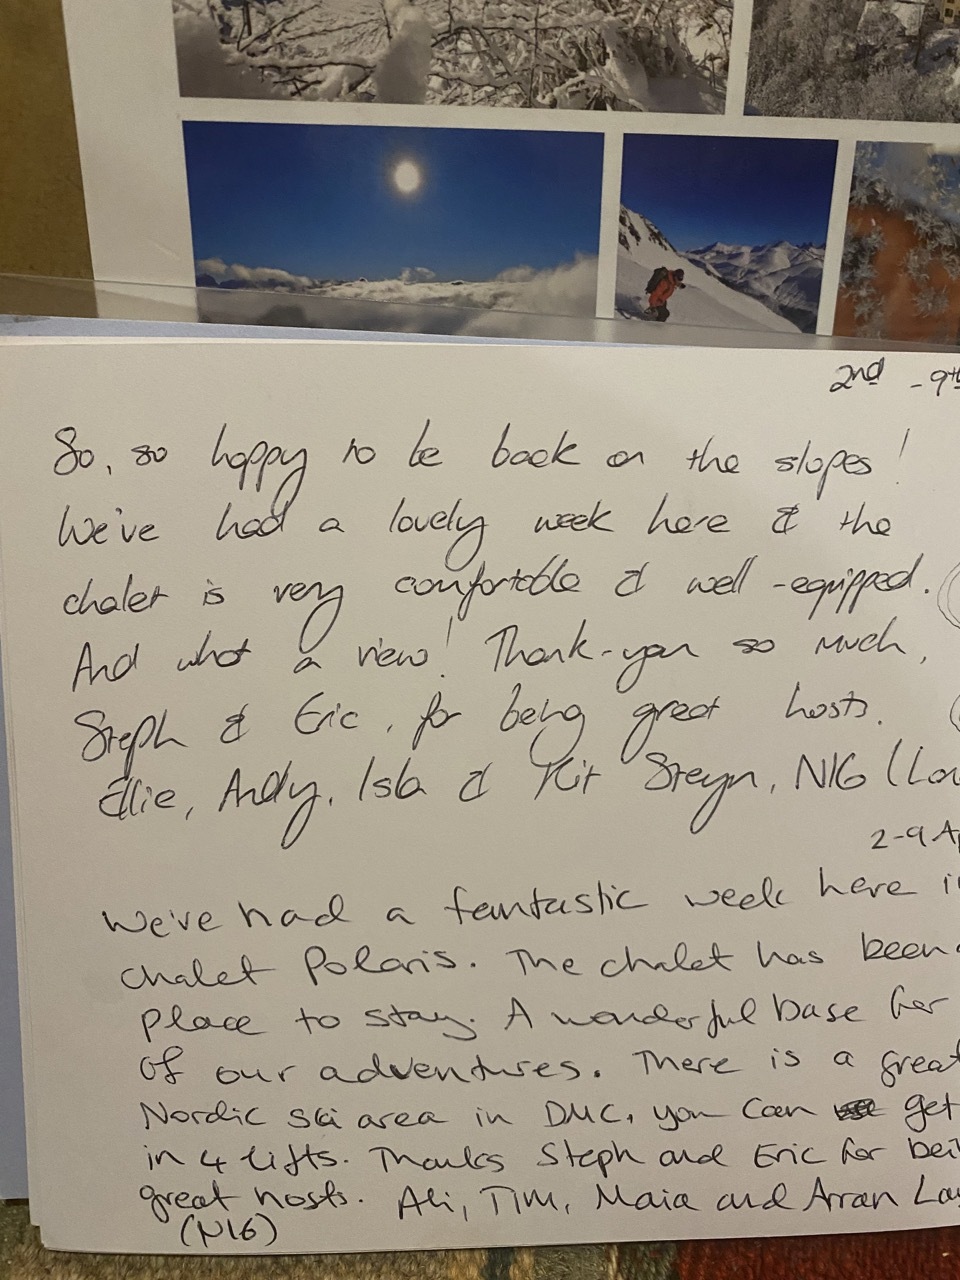 2nd - 9th
So, so happy to be back on the slopes!
We've had a lovely week here & the
chalet is very comfortable & well-equipped.
And what a view! Thank-you so much,
Steph & Eric, for being great hosts.
Ellie, Andy, Isla & Kit Steyn, N16 (Lo
2-9 Ap
We've had a fantastic week here i
Chalet Polaris. The chalet has been
place to stay. A wonderful base for
of our adventures. There is a great
Nordic ski area in DMC, you can get
in 4 lifts. Thanks Steph and Eric for bei
great hosts. Ali, Tim, Maia and Arran La
(N16)